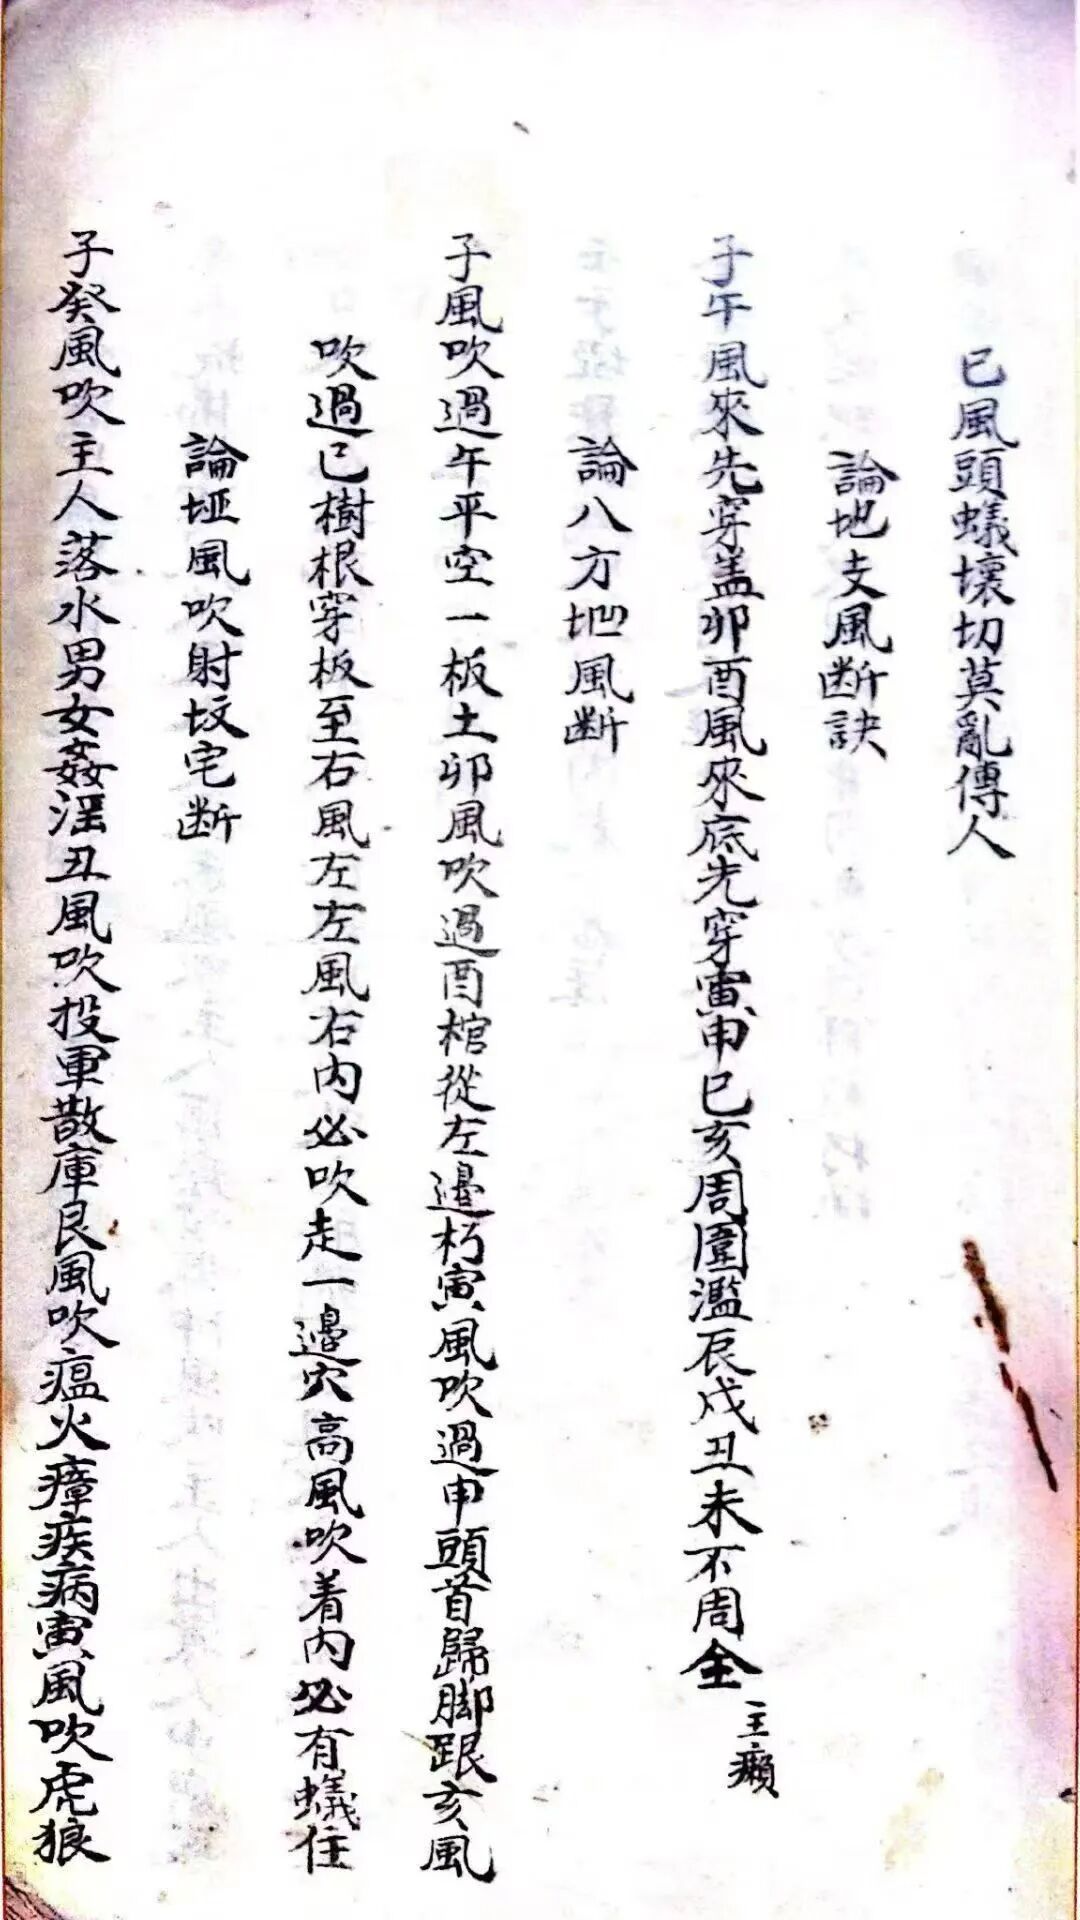 巳風頭蟻壞切莫亂傳人
論地支風斷訣
子午風來先穿盖卯酉風來底先穿寅申巳亥周圍濫辰戌丑未不周全
主癩
論八方凹風断
子風吹過午平空一板土卯風吹過酉棺從左邊朽寅風吹過申頭首歸脚跟亥風
吹過巳樹根穿板至右風左左風右内必吹走一邊穴高風吹着内必有蟻住
論埡風吹射坟宅断
子癸風吹主人落水男女姦淫丑風吹投軍散庫艮風吹瘟火瘴疾病寅風吹虎狼